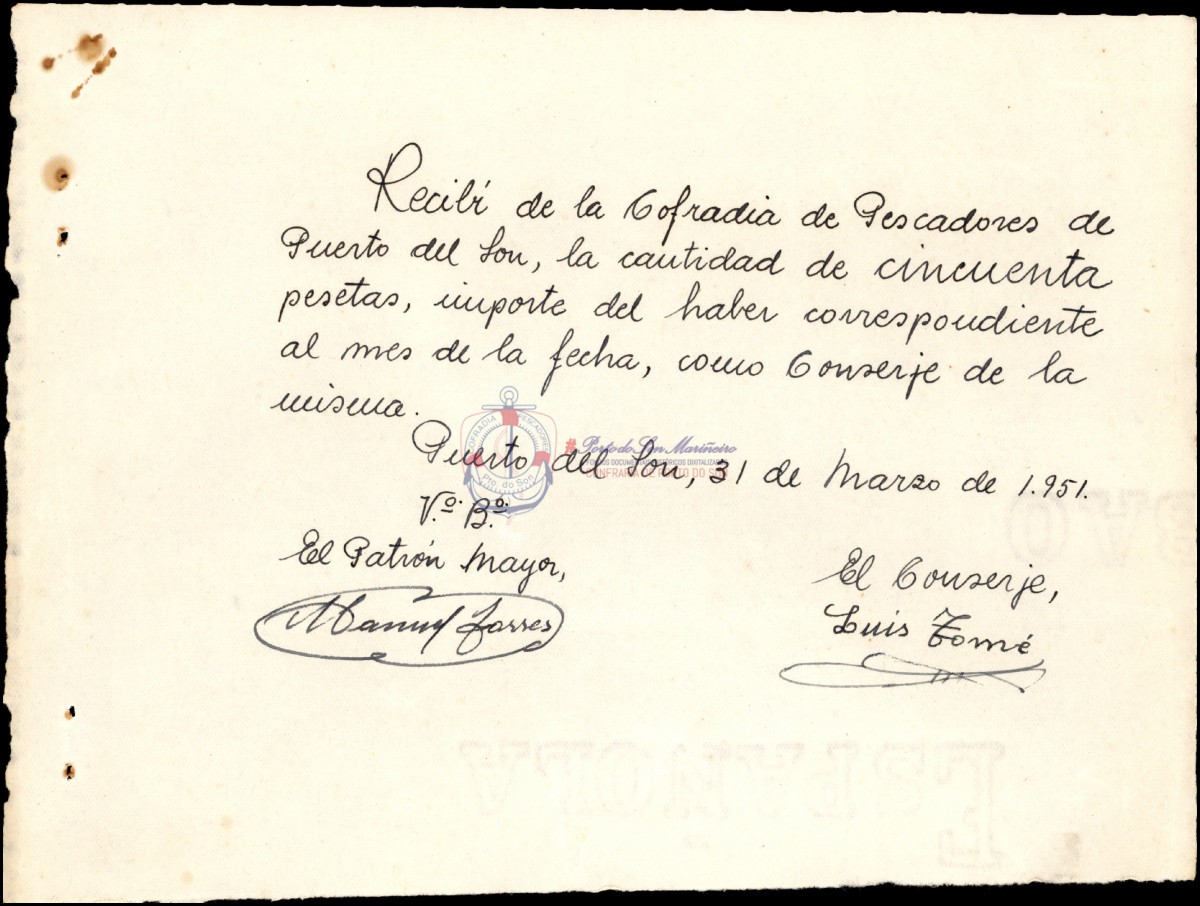 Recibí de la Cofradia de Pescadores de
Puerto del Son, la cantidad de cincuenta
pesetas, importe del haber correspondiente
al mes de la fecha, como Conserje de la
misma.
COFRADIA PESCADORES
Pto. do Son
#Porto do Son Mariñeiro
Puerto del Son, 31 de Marzo de 1.951.
V.º B.º
El Patrón Mayor,
El Conserje,
Manuel Torres
Luis Tomé